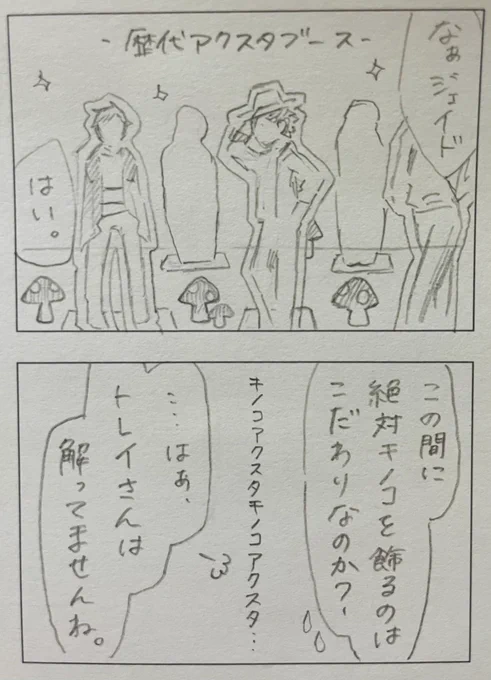 -歴代アクスタブース-
なぁジェイド
はい。
この間に
絶対キノコを飾るのは
こだわりなのか？
キノコアクスタキノコアクスタ…
…はぁ、
トレイさんは
解ってませんね。